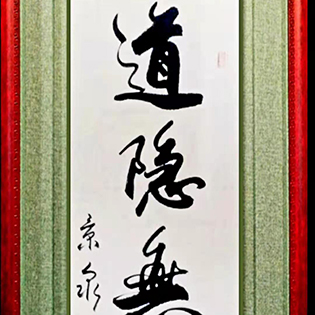 道隐無
景泉